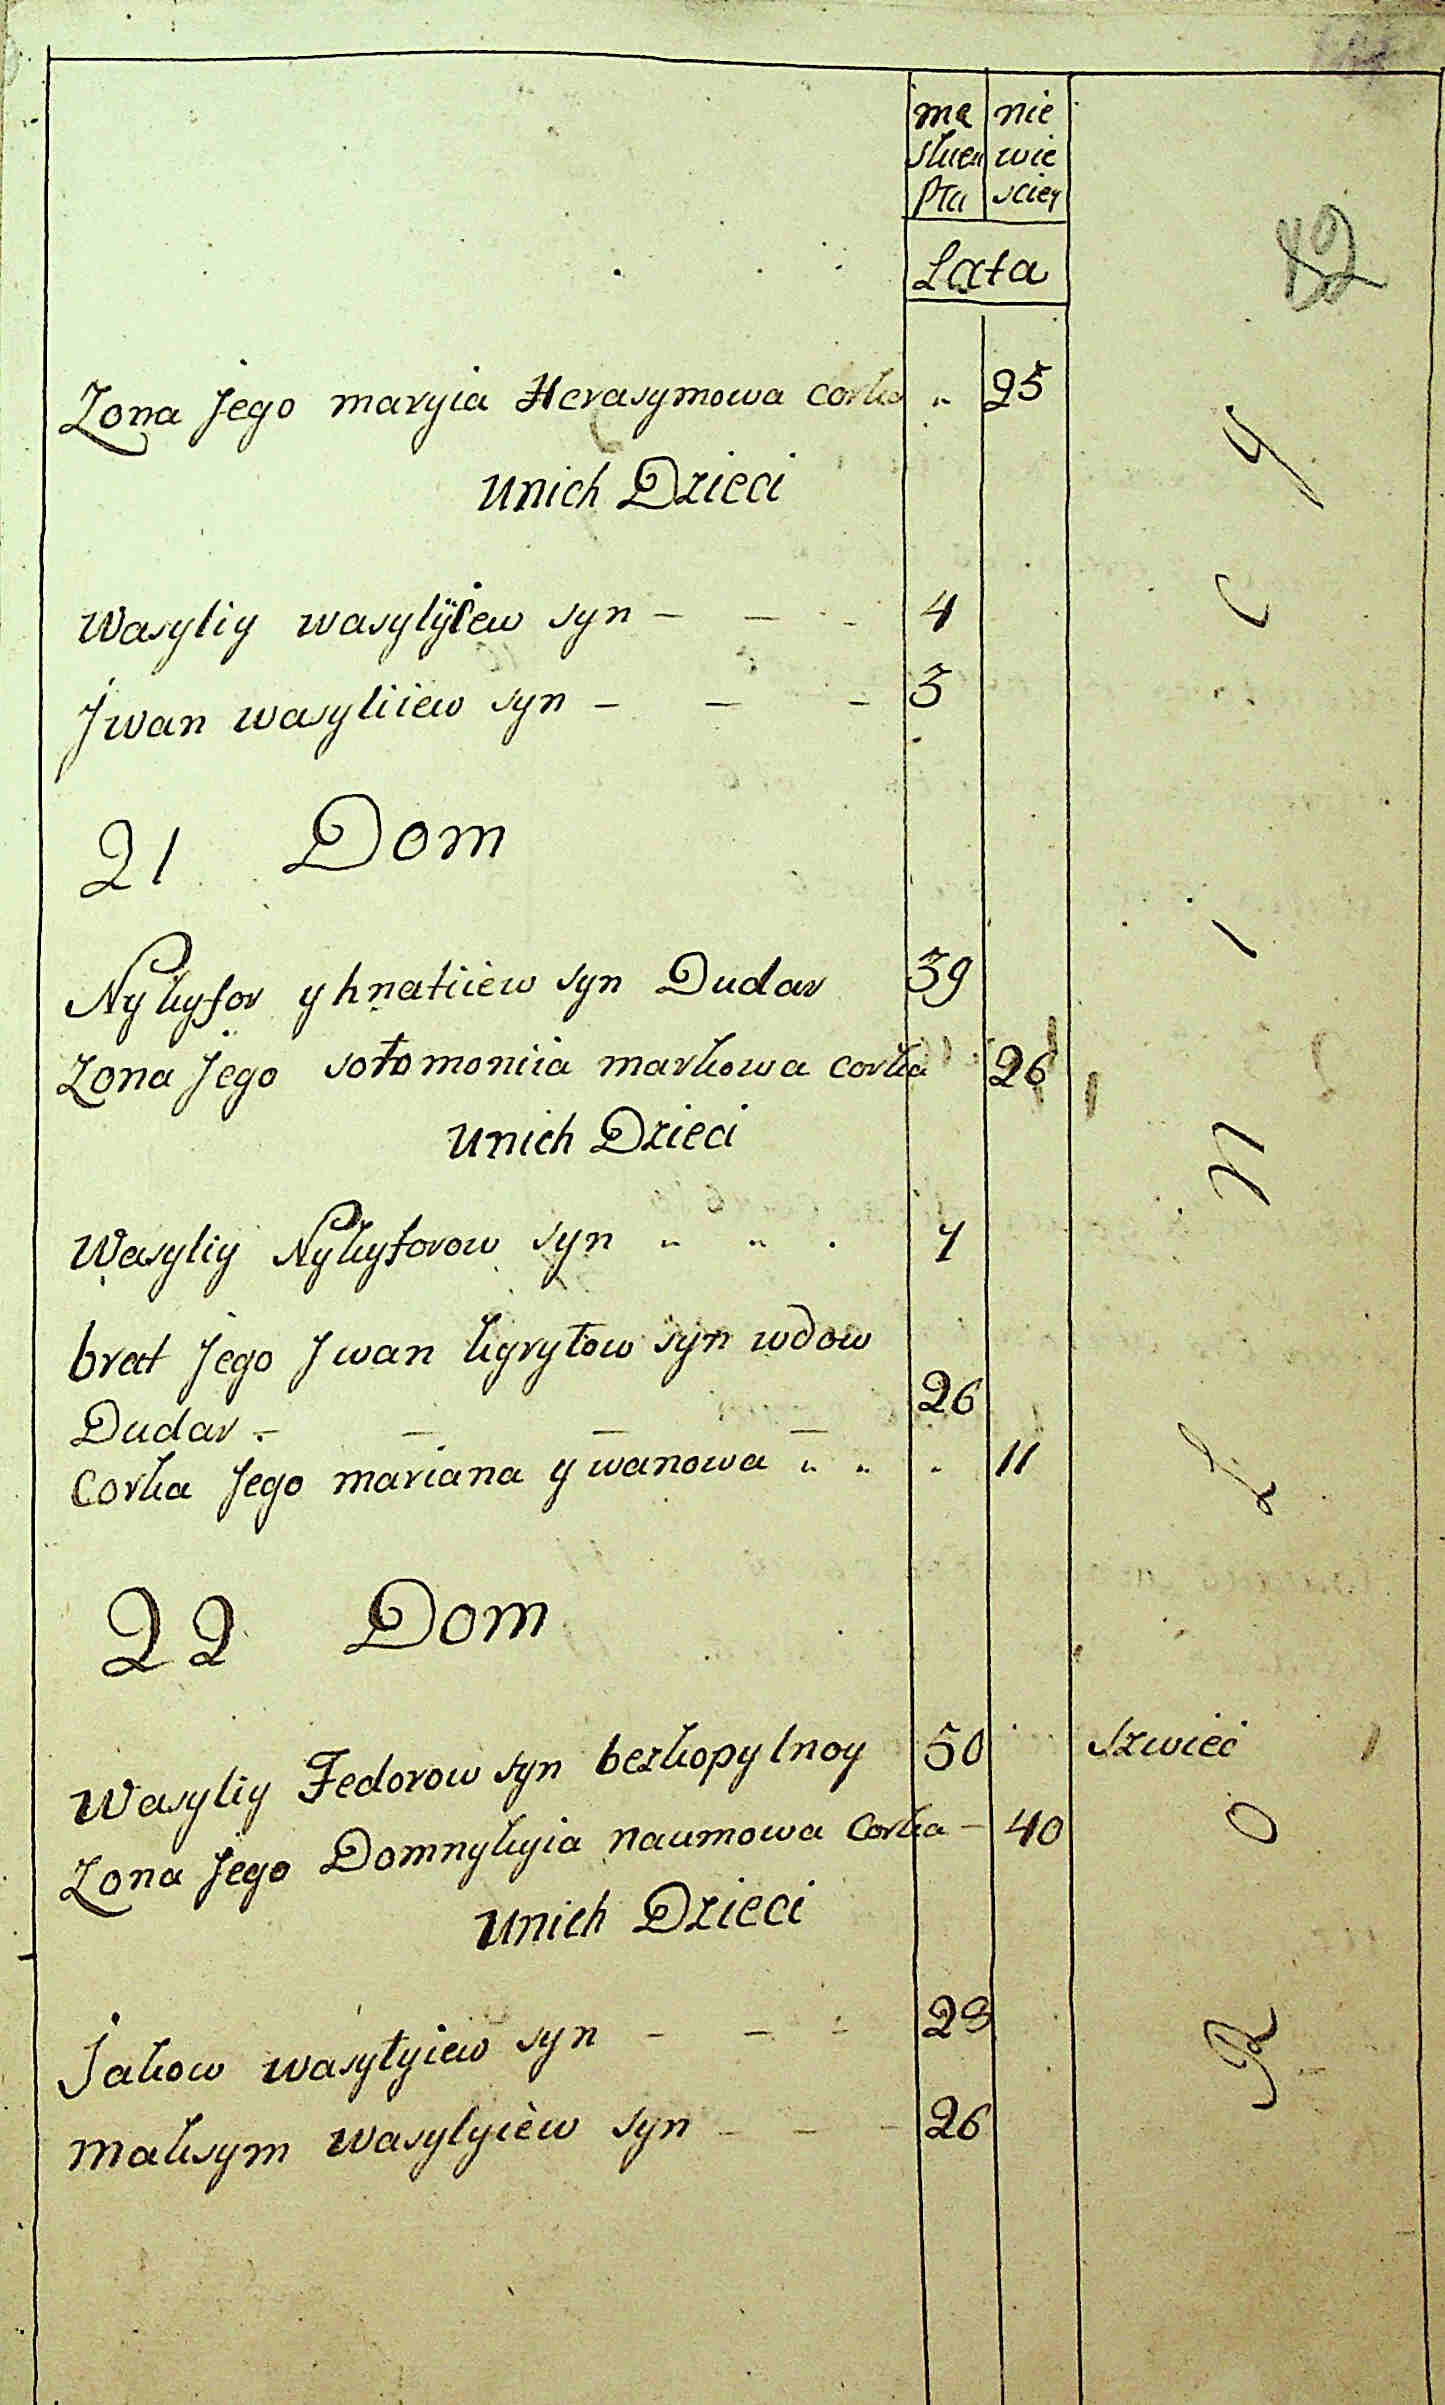 mę nie
skieu wie
Płu sciey
Lata
82
Zona Jego maryia Herasymowa corka " 25
unich Dzieci
Wasyliy wasylyiew syn - - - 4
Jwan wasyliiew syn - - - 3
21 Dom
Nykyfor yhnatiiew syn Dudar 39
Zona Jego sołomoniia markowa corka 26
unich Dzieci
Wasyliy Nykyforow syn " " . 7
brat Jego Jwan kyryłow syn wdow
Dudar - - - - 26
Corka Jego mariana ywanowa " " . 11
22 Dom
Wasyliy Fedorow syn bezkopylnoy 50 Szwieć
Zona Jego Domnykyia naumowa Corka - 40
unich Dzieci
Jakow wasyłyiew syn - - - 29
maksym wasylyiew syn - - - 26
R O L N I C Y